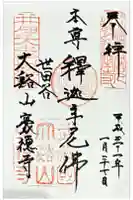 奉拝
平成三十一年
一月二十七日
本尊釋迦牟尼佛
世田谷
大谿山豪徳寺